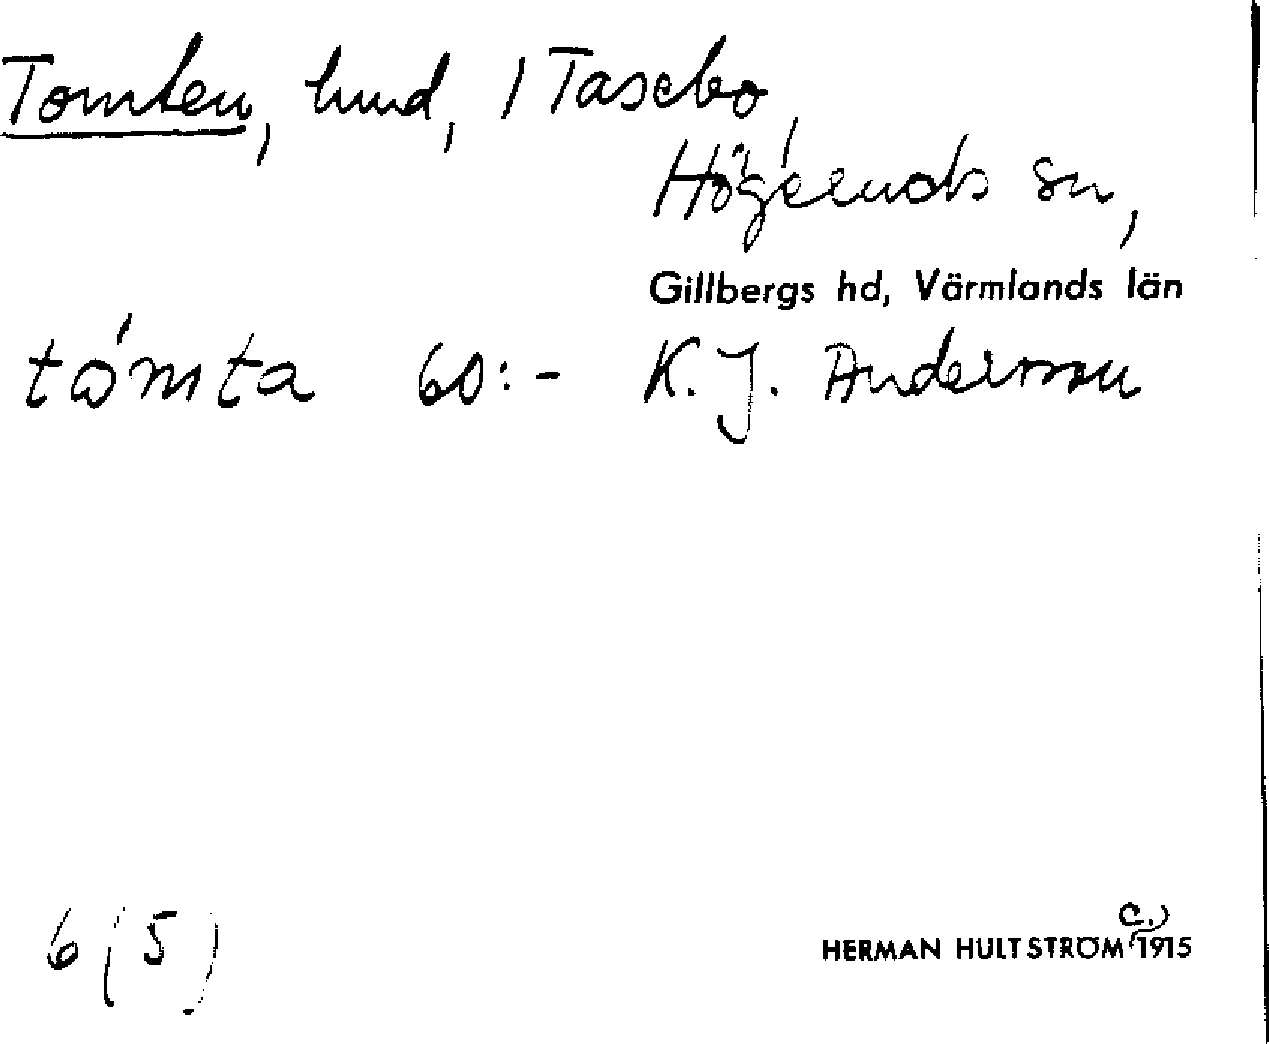 Tomten, hund, / Tasebo,
Högeruds sn,
Gillbergs hd, Värmlands län
tómta 60:- K. J. Andersson
6 (5)
c.)
HERMAN HULTSTRÖM 1915